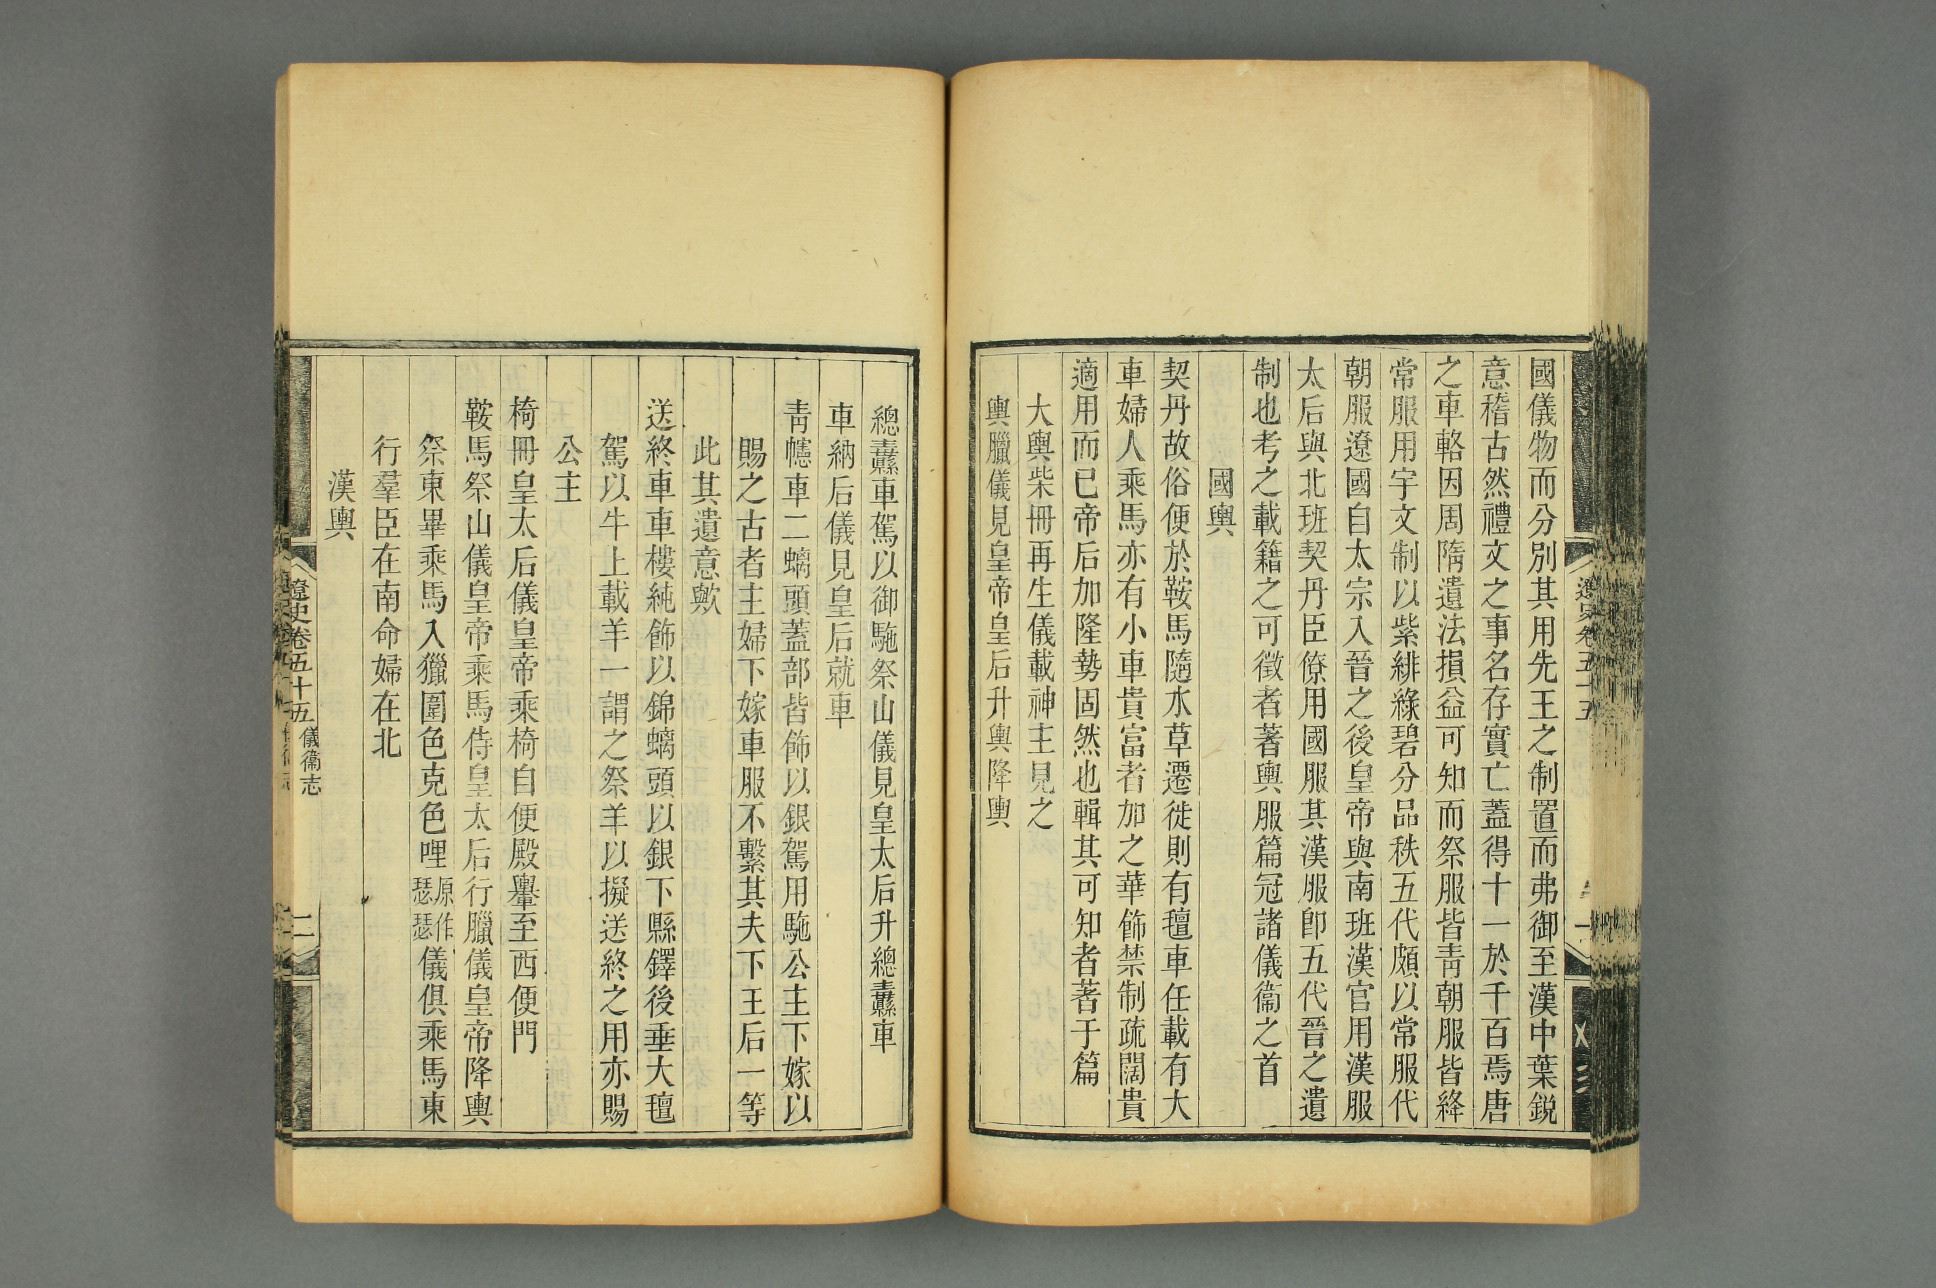 國儀物而分別其用先王之制置而弗御至漢中葉銳
意稽古然禮文之事名存實亡蓋得十一於千百焉唐
之車輅因周隋遺法損益可知而祭服皆青朝服皆絳
常服用宇文制以紫緋綠碧分品秩五代頗以常服代
朝服遼國自太宗入晉之後皇帝與南班漢官用漢服
太后與北班契丹臣僚用國服其漢服卽五代晉之遺
制也考之載籍之可徵者著輿服篇冠諸儀衞之首
國輿
契丹故俗便於鞍馬隨水草遷徙則有氊車任載有大
車婦人乘馬亦有小車貴富者加之華飾禁制疏闊貴
適用而已帝后加隆勢固然也輯其可知者著于篇
大輿柴冊再生儀載神主見之
輿臘儀見皇帝皇后升輿降輿
總纛車駕以御駞祭山儀見皇太后升總纛車
車納后儀見皇后就車
靑幰車二螭頭蓋部皆飾以銀駕用駞公主下嫁以
賜之古者王婦下嫁車服不繫其夫下王后一等
此其遺意歟
送終車車樓純飾以錦螭頭以銀下縣鐸後垂大氊
駕以牛上載羊一謂之祭羊以擬送終之用亦賜
公主
椅冊皇太后儀皇帝乘椅自便殿轝至西便門
鞍馬祭山儀皇帝乘馬侍皇太后行臘儀皇帝降輿
祭東畢乘馬入獵圍色克色哩原作瑟瑟儀俱乘馬東
行羣臣在南命婦在北
漢輿
遼史卷五十五 儀衞志 二